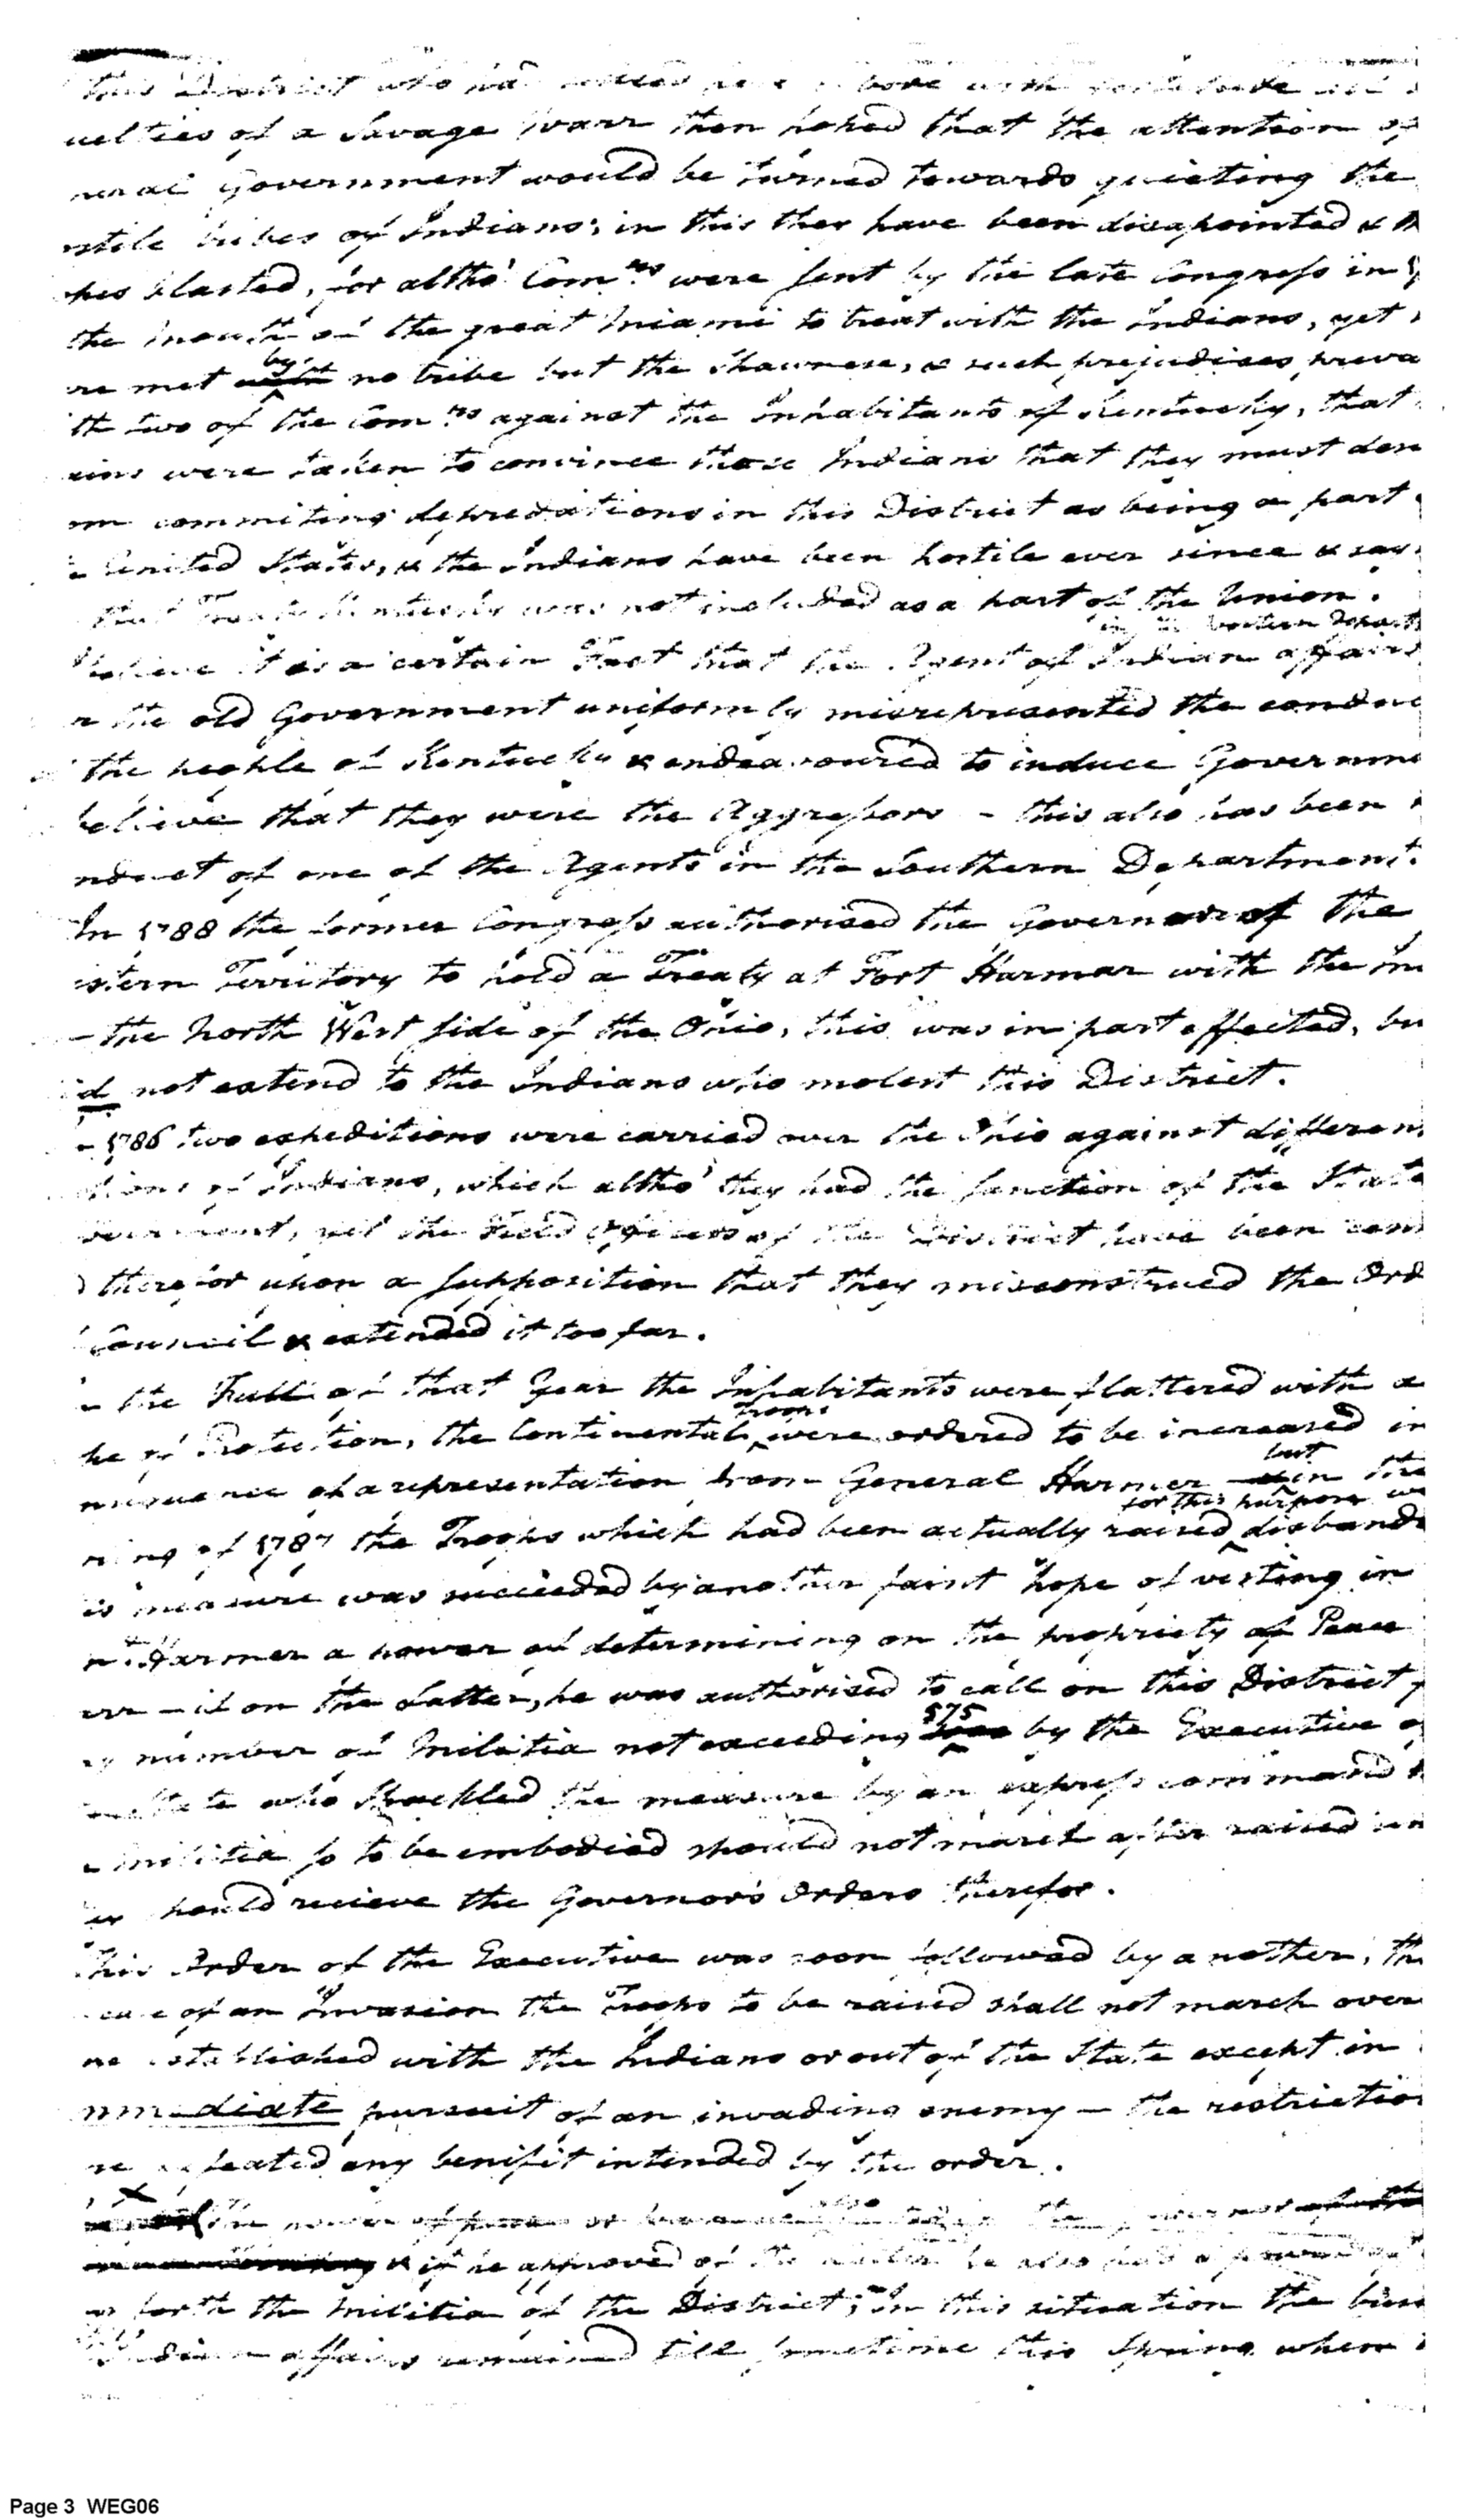 this District who had bore with
uelties of a Savage Warr then hoped that the attention of
neral Government would be turned towards quieting the
ostile tribes of Indians; in this they have been disapointed & th
pes blasted, for altho' Com.rs were sent by the late Congress in
the mouth of the great Miami to treat with the Indians, yet
re met with by no tribe but the Shawnese, & such prejudices preva
ith two of the Com.rs against the Inhabitants of Kentucky, that
ains were taken to convince those Indians that they must desi
om commiting depredations in this District as being a part
e United States, & the Indians have been hostile ever since & say
that Kentucky was not included as a part of the Union.
in the Western Depart
believe it is a certain Fact that the Agent of Indian affairs
r the old Government uniformly misrepresented the conduc
the people of Kentucky & endeavoured to induce Governme
believe that they were the Aggressors – this also has been
nduct of one of the Agents in the Southern Department.
In 1788 the former Congress authorised the Governor of the
estern Territory to hold a Treaty at Fort Harmar with the In
– the North West side of the Ohio, this was in part effected, bu
id not extend to the Indians who molest this District.
1786 two expeditions were carried over the Ohio against differen
ations of Indians, which altho' they had the sanction of the State
overnment, yet the Field Officers of the District have been cens
d therefor upon a supposition that they misconstrued the Ord
Council & extended it too far.
n the Fall of that Year the Inhabitants were flattered with a
pe of Protection, the Continental Troops were ordered to be increased in
nsequence of a representation from General Harmer but in the
for this purpose we
ring of 1787 the Troops which had been actually raised disbande
is measure was succeeded by another faint hope of vesting in
n. Harmer a power of determining on the propriety of Peace
arr – if on the Latter, he was authorised to call on this District f
ny number of Militia not exceeding 575 by the Executive of
State who shackled the measure by an express command th
e militia so to be embodied should not march after raised un
er should recieve the Governor's Orders therefor.
This Order of the Executive was soon followed by another, tha
case of an Invasion the Troops to be raised shall not march over
ne established with the Indians or out of the State except in
mmediate pursuit of an invading enemy – the restriction
re defeated any benifit intended by the order.
the power of peace or not
& if he approved of the latter he also had a power
forth the Militia of the District; In this situation the busi
Indian affairs remained till sometime this Spring when
Page 3 WEG06